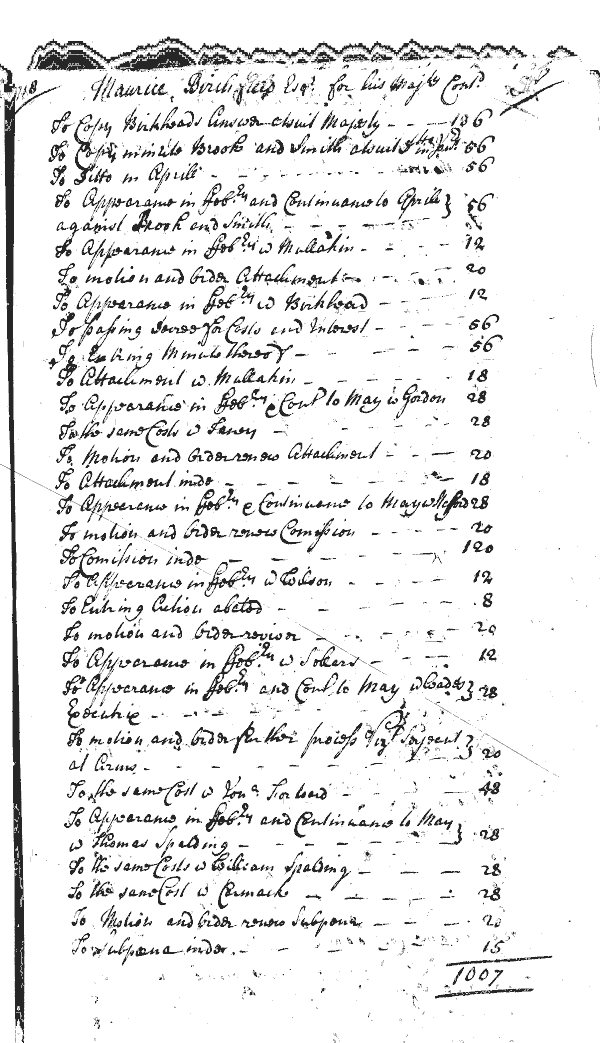 Maurice Birchfield Esqr. for his Majts Cont.
To Copy Birkheads Answer atsuit Majesty - - - 136
To Copy minute Brooke and Smith atsuit 56
To Ditto in Aprill - - - 56
To Appearance in Feb:ry and Continuance to Aprill } 56
against Brook and Smith - - -
To Appearance in Feb:ry w Mullakin - - - 12
To motion and order Attachment - - - 20
To Appearance in Feb:ry w Birkhead - - - 12
To passing Decree for Costs and Interest - - - 56
To Entring Minute thereof - - - 56
To Attachment w. Mullakin - - - 18
To Appearance in Feb:ry & Cont to May w Gordon 28
To the same Costs w Taney - - - 28
To Motion and order renew Attachment - - - 20
To Attachment inde - - - 18
To Appearance in Feb:ry & Continuance to May w 28
To motion and order renew Comission - - - 20
To Comission inde - - - 120
To Appearance in Feb:ry w Wilson - - - 12
To Entring Action abated - - - 8
To motion and order revivor - - - 20
To Appearance in Feb:ry w Sollars - - - 12
To Appearance in Feb:ry and Cont to May w } 28
Executrix - - -
To motion and order further process Serjeant } 20
at Arms - - -
To the same Cost w Forward - - - 48
To Appearance in Feb:ry and Continuance to May } 28
w Thomas Spalding - - -
To the same Costs w William Spalding - - - 28
To the same Cost w Carmack - - - 28
To Motion and order renew Subpena - - - 20
To Subpena inde. - - - 15
1007